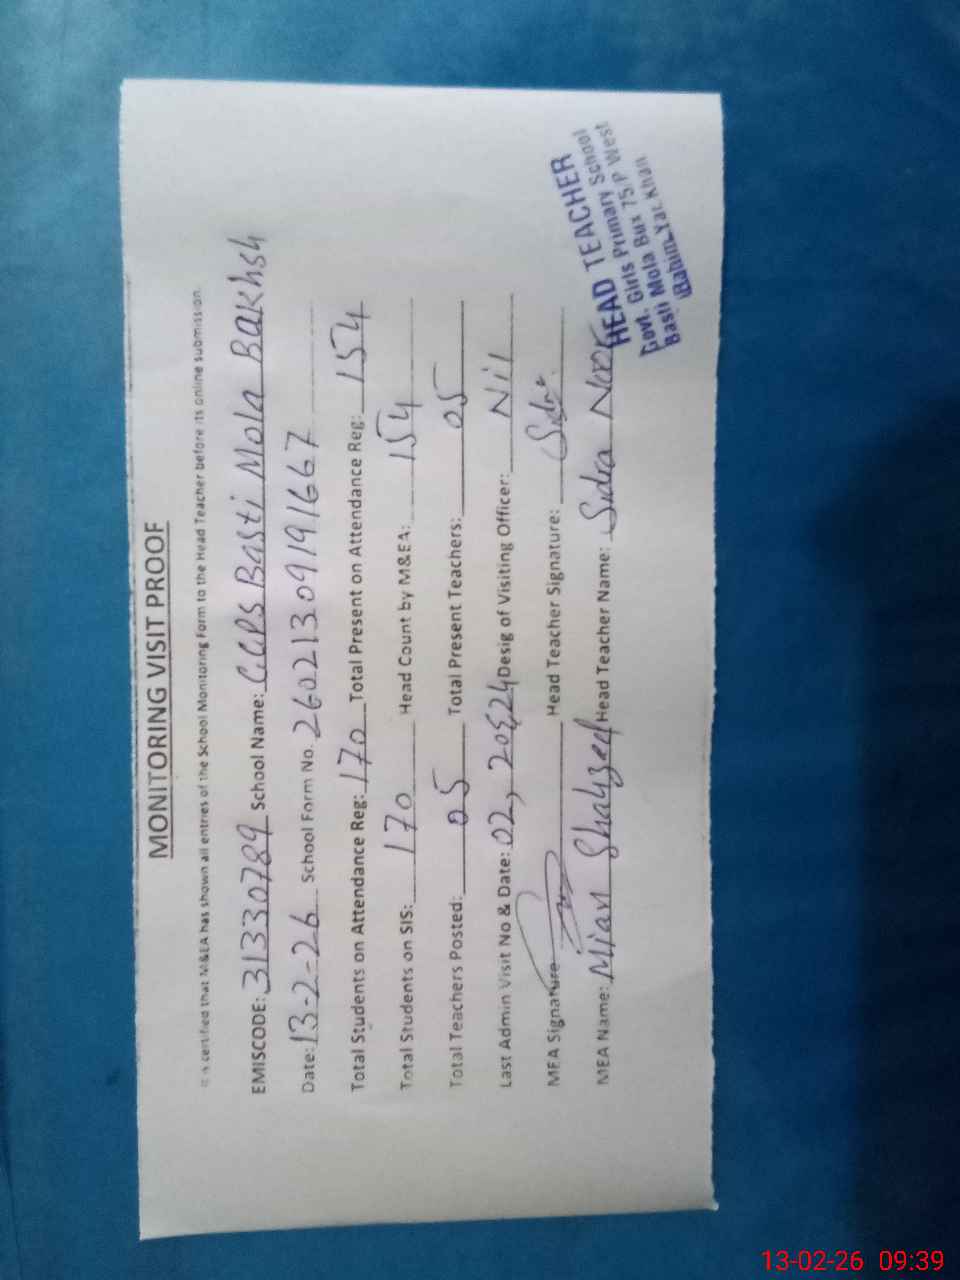 MONITORING VISIT PROOF
It is certified that M&EA has shown all entries of the School Monitoring Form to the Head Teacher before its online submission.
EMISCODE: 31330789 School Name: G.G.P.S Basti Mola Bakhsh
Date: 13-2-26 School Form No. 26021309191667
Total Students on Attendance Reg: 170 Total Present on Attendance Reg: 154
Total Students on SIS: 170 Head Count by M&EA: 154
Total Teachers Posted: 05 Total Present Teachers: 05
Last Admin Visit No & Date: 02, Desig of Visiting Officer: Nil
MEA Signature Head Teacher Signature: Sidra
MEA Name: Mian Shahzeel Head Teacher Name: Sidra Noor
HEAD TEACHER
Govt. Girls Primary School
Basti Mola Bux 75.P West
Rahim Yar Khan
13-02-26 09:39